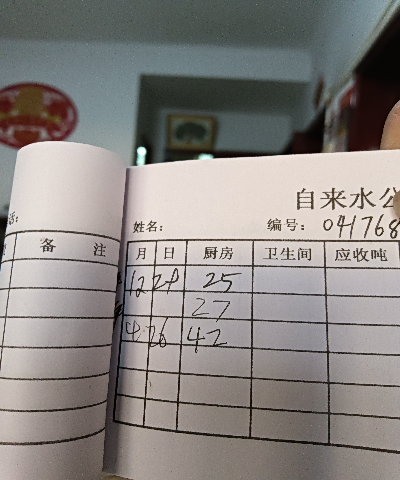 自来水公
姓名： 编号： 041768
备 注
月 日 厨房 卫生间 应收吨
12 29 25
27
4 26 42